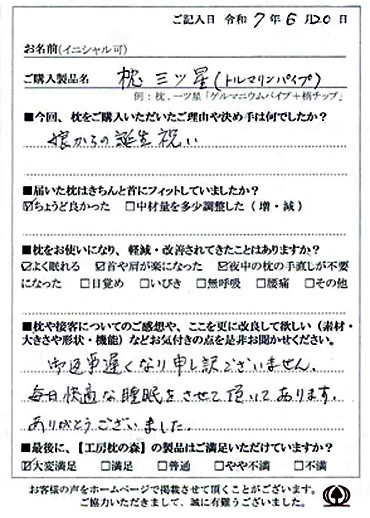 ご記入日 令和 7 年 6 月 20 日
お名前(イニシャル可)
ご購入製品名 枕 三ツ星(トルマリンパイプ)
例:枕、一ツ星「ゲルマニウムパイプ+梢チップ」
■今回、枕をご購入いただいたご理由や決め手は何でしたか?
娘からの誕生祝い
■届いた枕はきちんと首にフィットしていましたか?
☑ちょうど良かった □中材量を多少調整した(増・減)
■枕をお使いになり、軽減・改善されてきたことはありますか?
☑よく眠れる ☑首や肩が楽になった ☑夜中の枕の手直しが不要
になった □目覚め □いびき □無呼吸 □腰痛 □その他
■枕や接客についてのご感想や、ここを更に改良して欲しい(素材・
大きさや形状・機能)などお気付きの点を是非お聞かせください。
御返事遅くなり申し訳ございません。
毎日快適な睡眠をさせて頂いてあります。
ありがとうございました。
■最後に、【工房枕の森】の製品はご満足いただけていますか?
☑大変満足 □満足 □普通 □やや不満 □不満
お客様の声をホームページで掲載させて頂くことがございます。
ご協力いただきまして、誠に有難うございました。